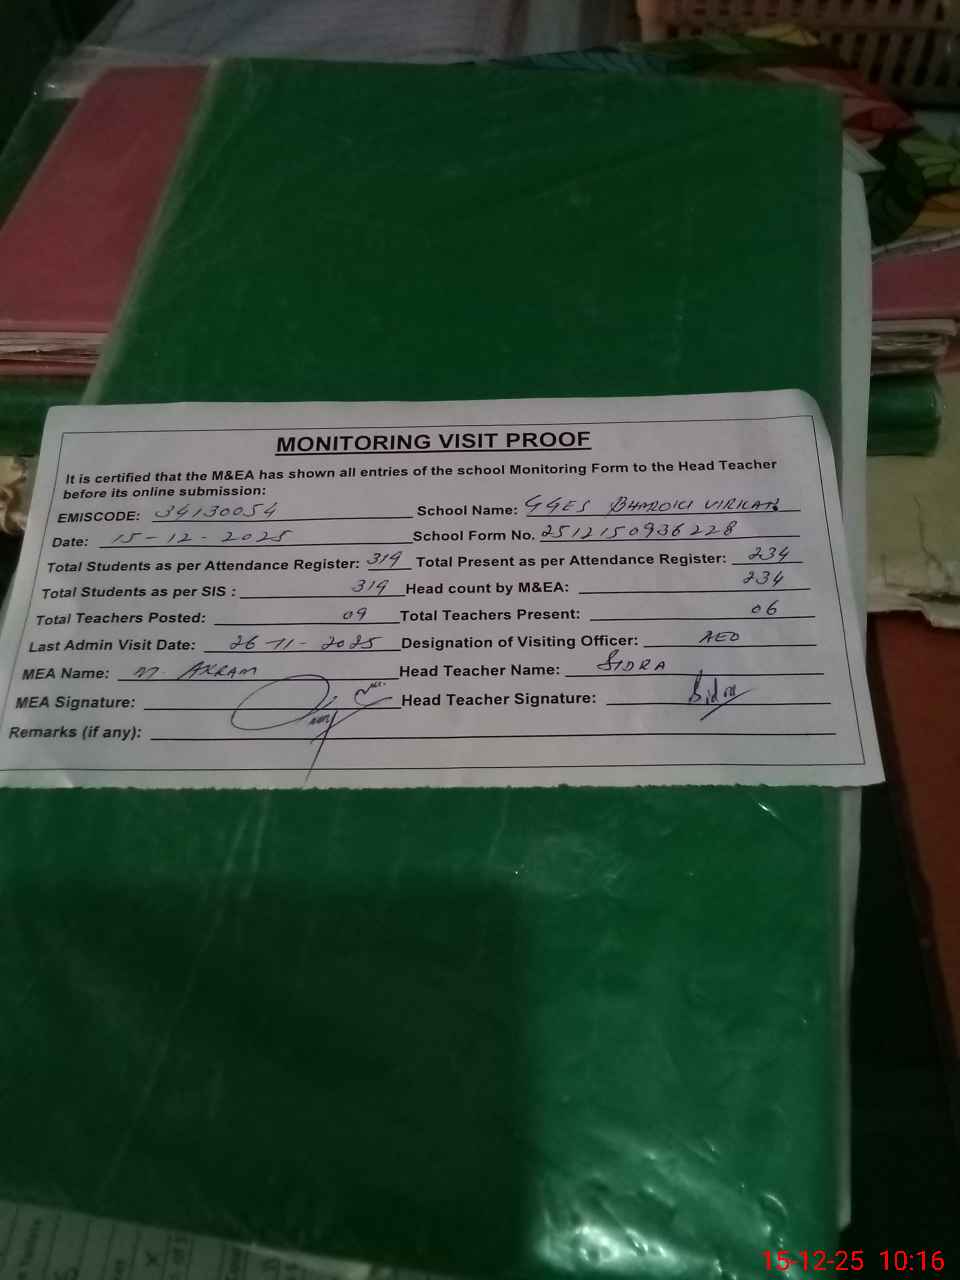 MONITORING VISIT PROOF
It is certified that the M&EA has shown all entries of the school Monitoring Form to the Head Teacher
before its online submission:
EMISCODE: 34130054 School Name: GGES BHAROKI VIRKAN
Date: 15-12-2025 School Form No. 2512150936228
Total Students as per Attendance Register: 319 Total Present as per Attendance Register: 234
Total Students as per SIS : 319 Head count by M&EA: 234
Total Teachers Posted: 09 Total Teachers Present: 06
Last Admin Visit Date: 26-11-2025 Designation of Visiting Officer: AEO
MEA Name: M. AKRAM Head Teacher Name: SIDRA
MEA Signature: Head Teacher Signature: Sidra
Remarks (if any):
15-12-25 10:16